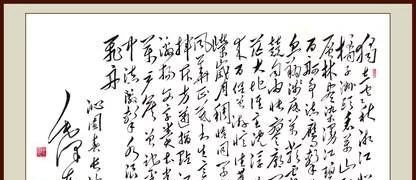 独立寒秋湘江北
橘子洲头看万山
层林尽染漫江碧
百舸争流鹰击
鱼翔浅底万类霜
由怅寥廓
茫大地谁主沉浮
来百侣曾游忆往
嵘岁月稠恰同学
风华正茂书生意
挥斥方遒指点江
激扬文字粪土当
万户侯曾记
中流击水浪
飞舟
沁园春长沙
毛泽东